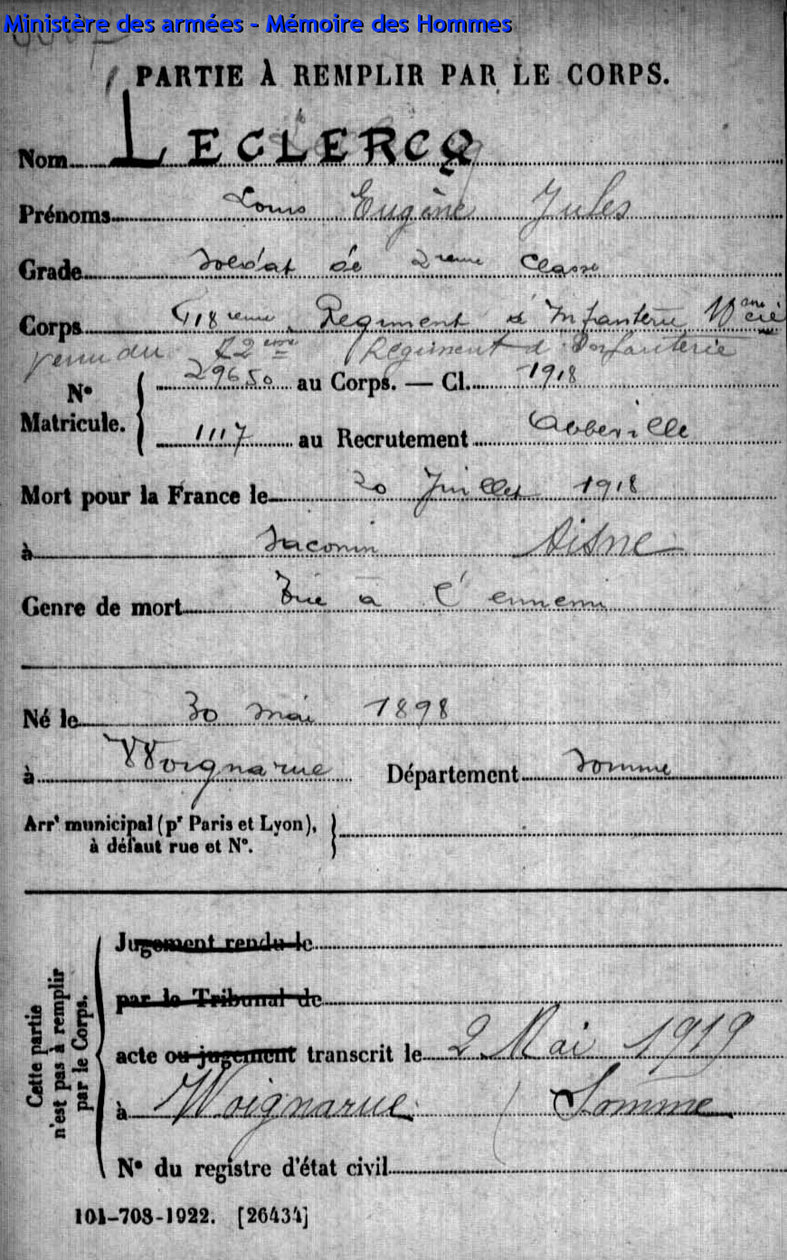 Ministère des armées - Mémoire des Hommes
PARTIE À REMPLIR PAR LE CORPS.
Nom LECLERCQ
Prénoms Louis Eugène Jules
Grade Soldat de 2eme Classe
Corps 418eme Regiment d'Infanterie 10eme Cie
venu du 72eme Régiment d'Infanterie
N° Matricule. 29650 au Corps. — Cl. 1918
1117 au Recrutement Abbeville
Mort pour la France le 20 Juillet 1918
à Saconin Aisne
Genre de mort Tué à l'ennemi
Né le 30 mai 1898
à Woignarue Département Somme
Arrt municipal (pr Paris et Lyon),
à défaut rue et N°.
Cette partie
n'est pas à remplir
par le Corps.
Jugement rendu le
par le Tribunal de
acte ou jugement transcrit le 2 Mai 1919
à Woignarue Somme
N° du registre d'état civil
101-708-1922. [26434]